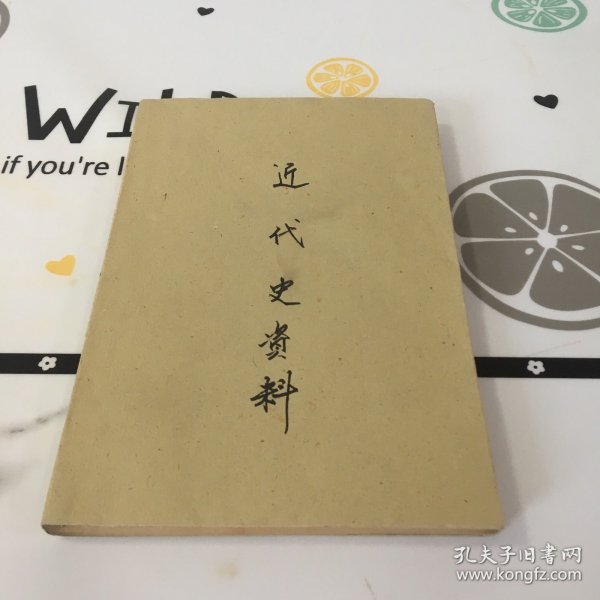 WILD
if you're l
近代史资料
孔夫子旧书网
www.kongfz.com